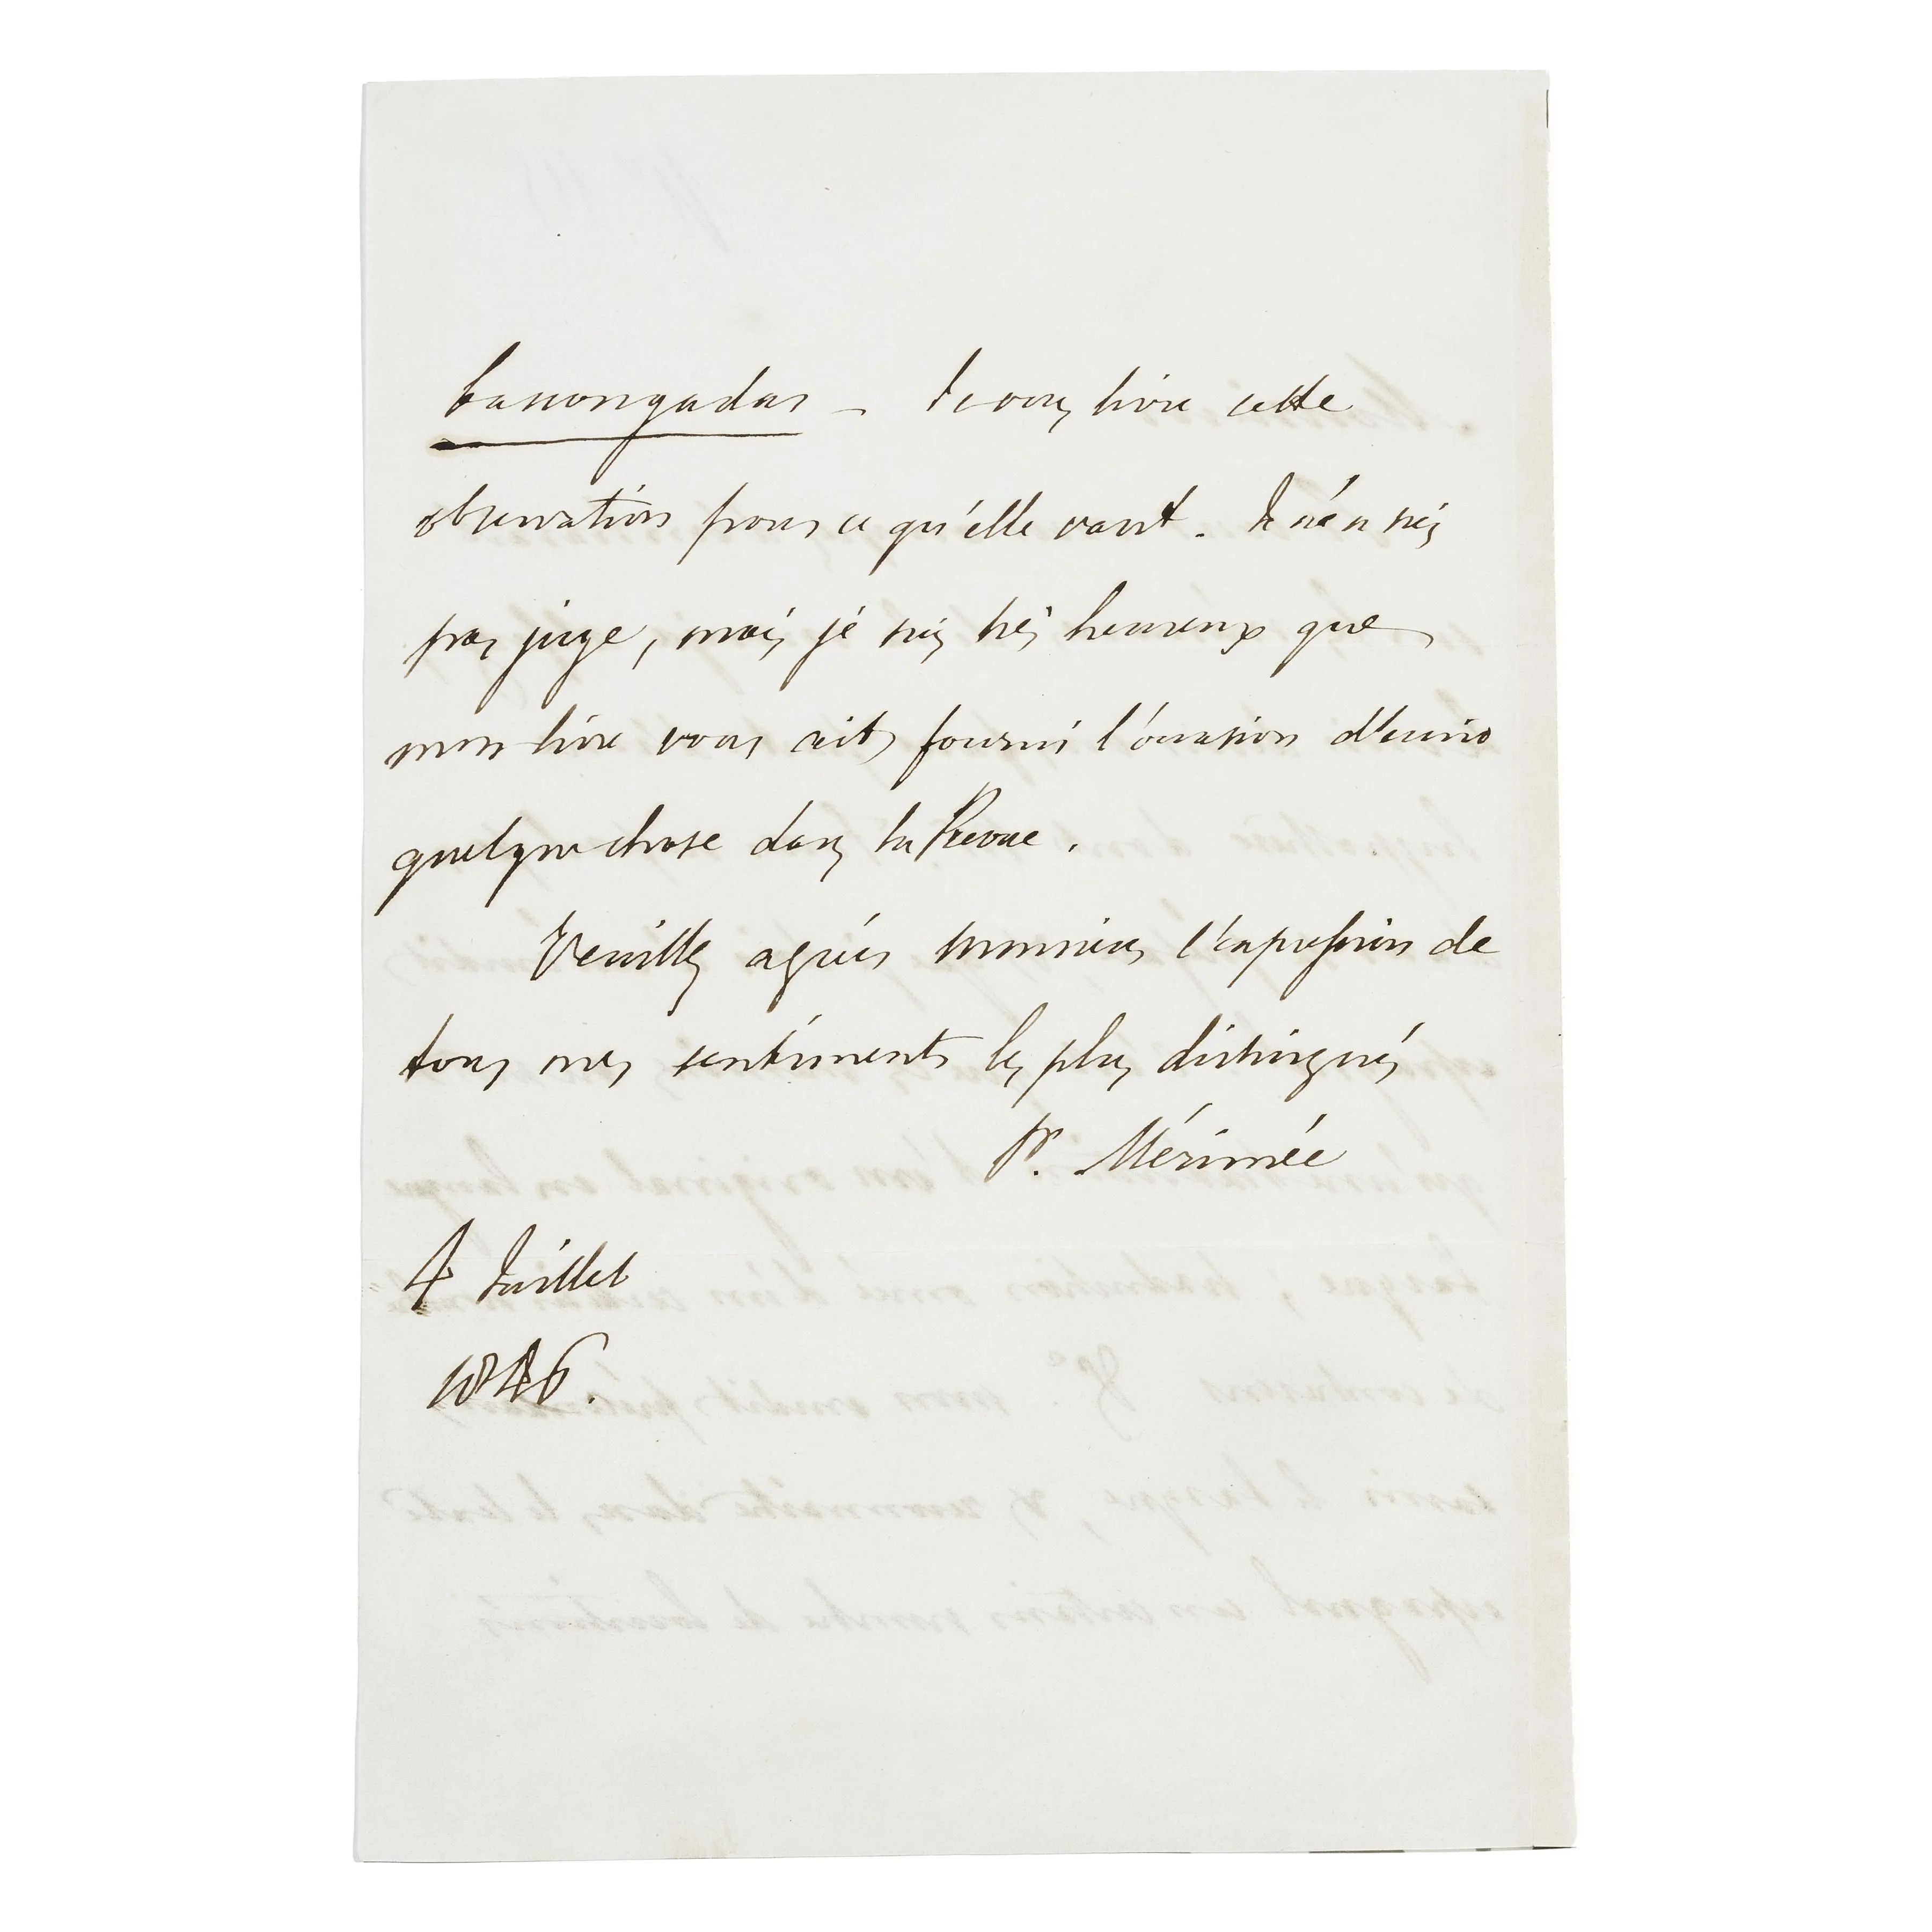 bascongadas – Je vous livre cette
observation pour ce qu'elle vaut. Je n'en suis
pas juge, mais je suis très heureux que
mon livre vous ait fourni l'occasion d'écrire
quelque chose dans la Revue.
Veuillez agréer Monsieur l'expression de
tous mes sentiments les plus distingués
Pr. Mérimée
4 Juillet
1886.